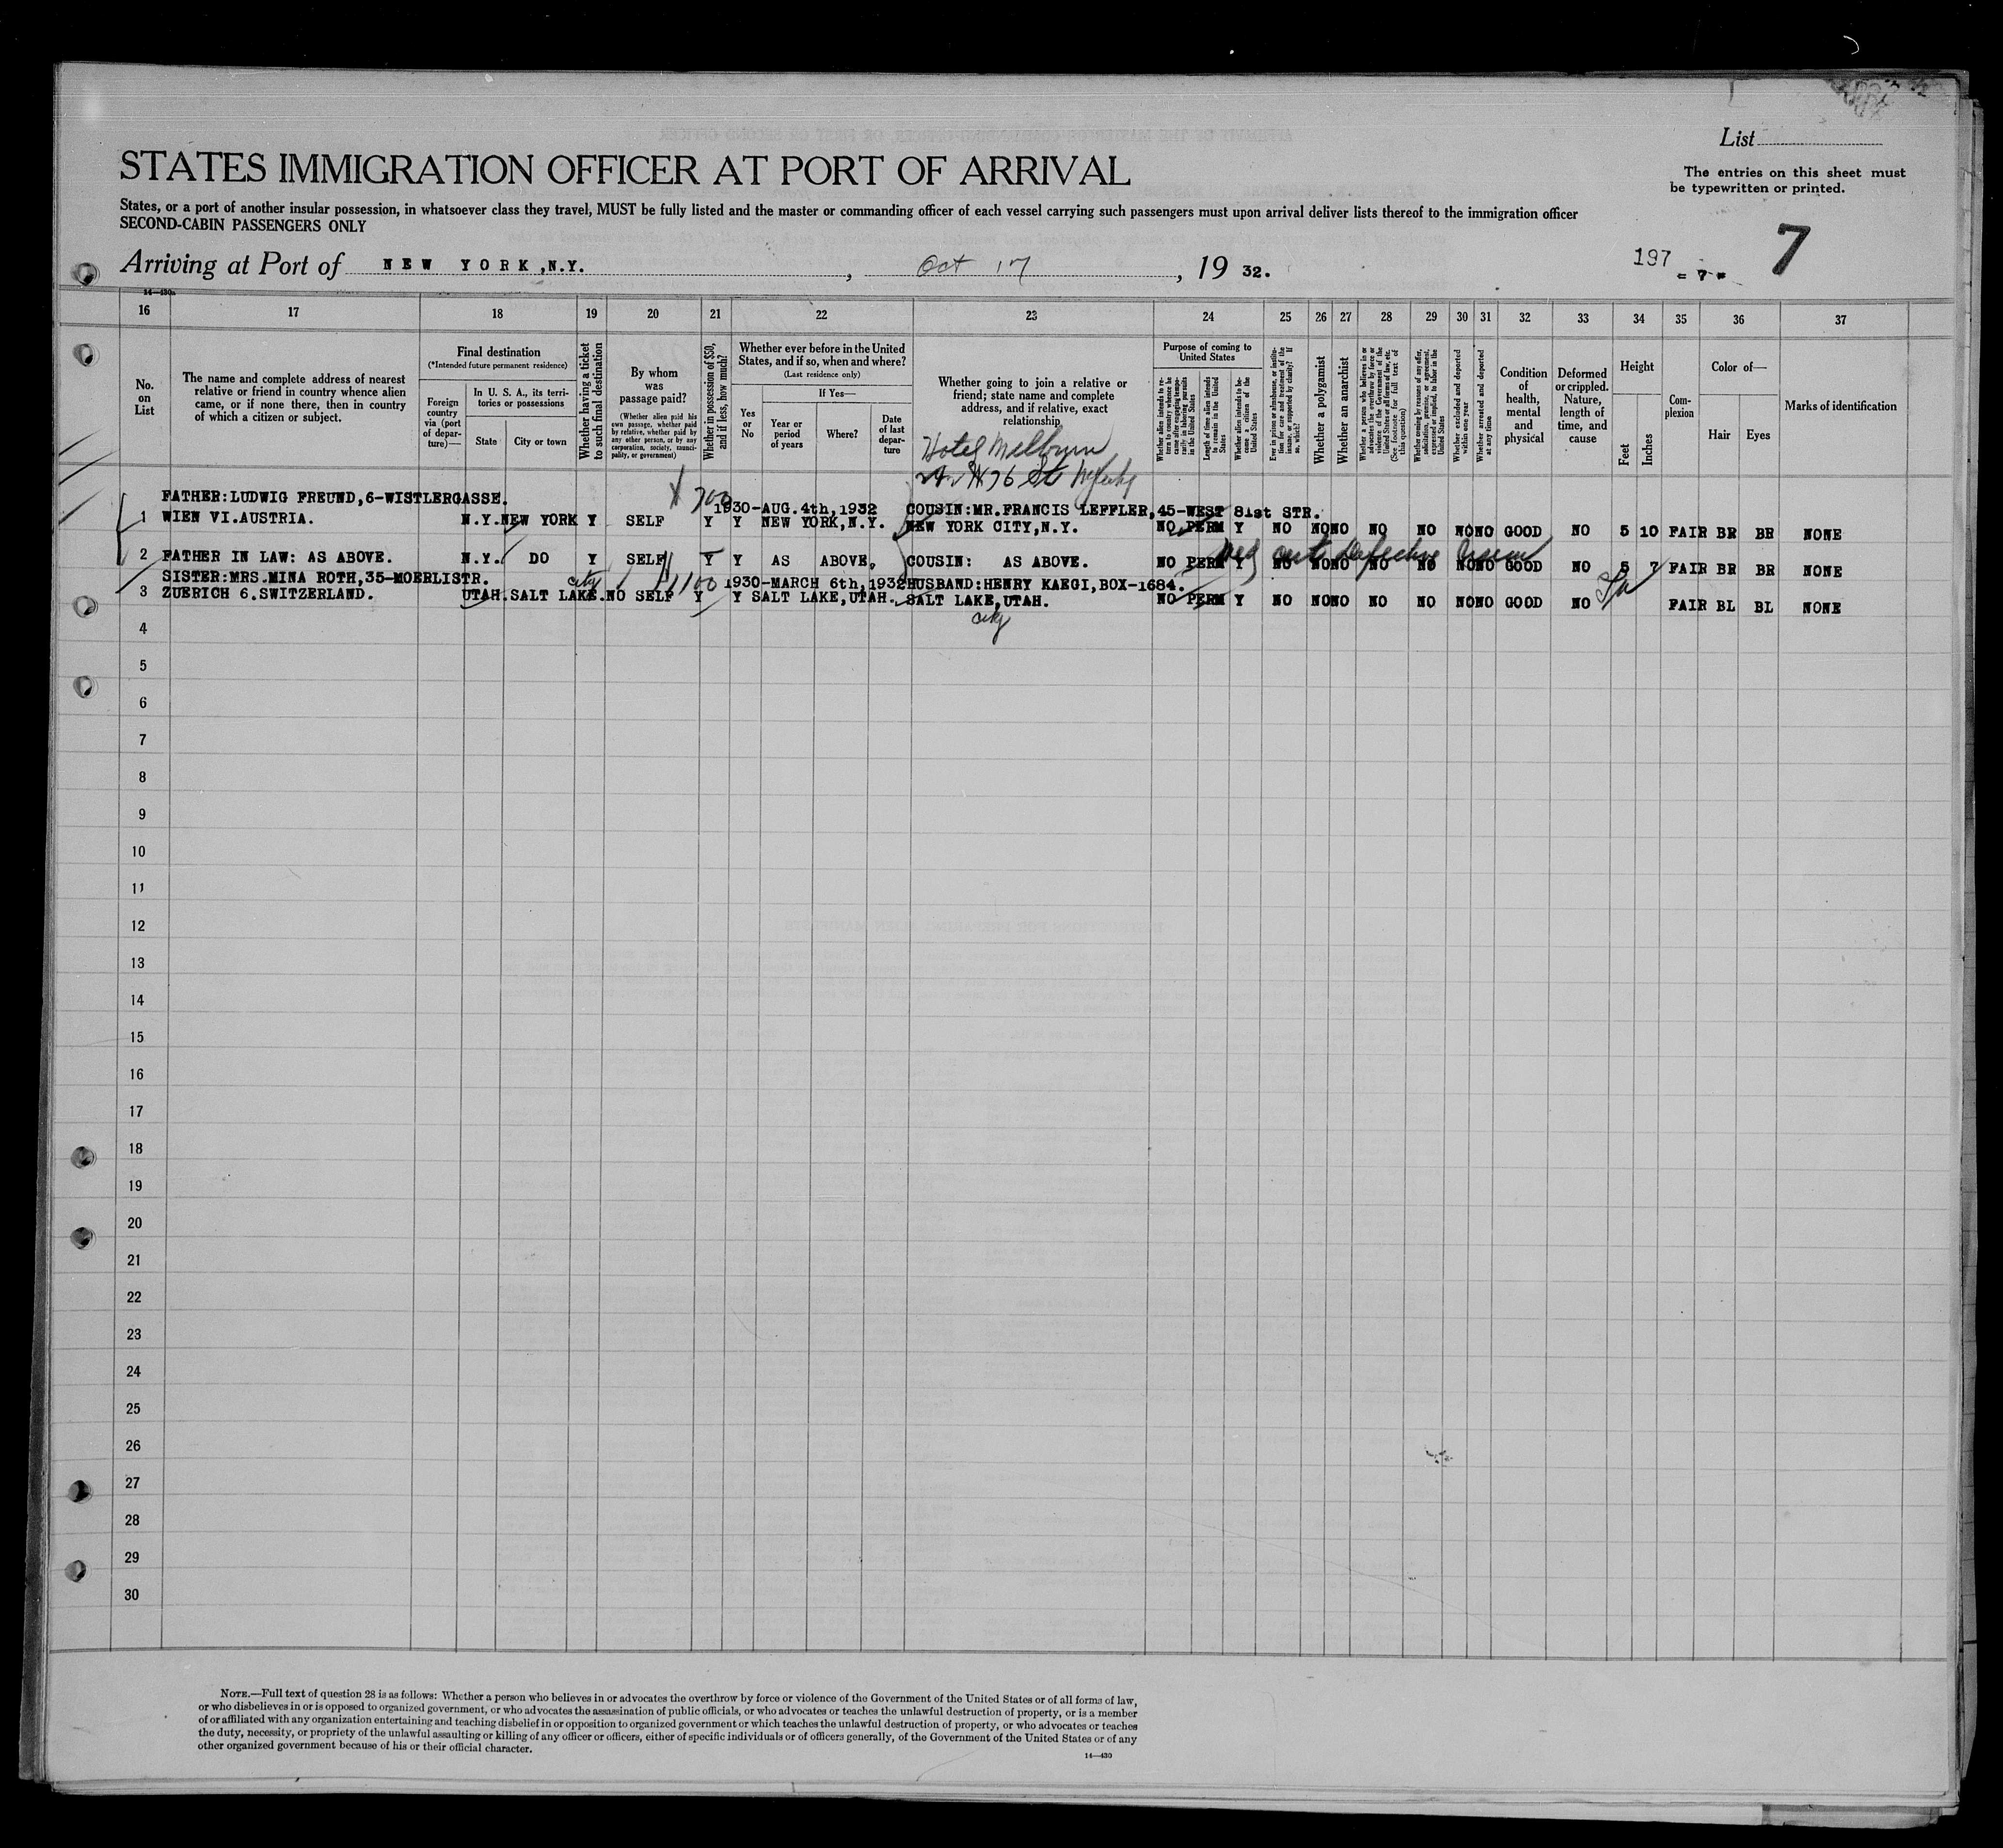 List
STATES IMMIGRATION OFFICER AT PORT OF ARRIVAL
The entries on this sheet must
be typewritten or printed.
States, or a port of another insular possession, in whatsoever class they travel, MUST be fully listed and the master or commanding officer of each vessel carrying such passengers must upon arrival deliver lists thereof to the immigration officer
SECOND-CABIN PASSENGERS ONLY
Arriving at Port of NEW YORK, N.Y. , Oct 17 , 19 32.
197 = 7 = 7
14—430a
16 17 18 19 20 21 22 23 24 25 26 27 28 29 30 31 32 33 34 35 36 37
No. on List
The name and complete address of nearest relative or friend in country whence alien came, or if none there, then in country of which a citizen or subject.
Final destination
(*Intended future permanent residence)
Foreign country via (port of departure)—
In U. S. A., its territories or possessions
State
City or town
Whether having a ticket to such final destination
By whom was passage paid?
(Whether alien paid his own passage, whether paid by relative, whether paid by any other person, or by any corporation, society, municipality, or government)
Whether in possession of $50, and if less, how much?
Whether ever before in the United States, and if so, when and where?
(Last residence only)
Yes or No
If Yes—
Year or period of years
Where?
Date of last departure
Whether going to join a relative or friend; state name and complete address, and if relative, exact relationship
Purpose of coming to United States
Whether alien intends to return to country whence he came after engaging temporarily in laboring pursuits in the United States
Length of time alien intends to remain in the United States
Whether alien intends to become a citizen of the United States
Ever in prison or almshouse, or institution for care and treatment of the insane, or supported by charity? If so, which?
Whether a polygamist
Whether an anarchist
Whether a person who believes in or advocates the overthrow by force or violence of the Government of the United States or all forms of law, etc. (See footnote for full text of this question)
Whether coming by reason of any offer, solicitation, promise, or agreement, expressed or implied, to labor in the United States
Whether excluded and deported within one year
Whether arrested and deported at any time
Condition of health, mental and physical
Deformed or crippled. Nature, length of time, and cause
Height
Feet
Inches
Complexion
Color of—
Hair
Eyes
Marks of identification
Hotel Melburn
W 76 St
700
FATHER:LUDWIG FREUND,6-WISTLERGASSE. 1930-AUG.4th,1932 COUSIN:MR.FRANCIS LEFFLER,45-WEST 81st STR.
1 WIEN VI.AUSTRIA. N.Y. NEW YORK Y SELF Y Y NEW YORK,N.Y. NEW YORK CITY,N.Y. NO PERM Y NO NO NO NO NO NO NO GOOD NO 5 10 FAIR BR BR NONE
Defective
2 FATHER IN LAW: AS ABOVE. N.Y. DO Y SELF Y Y AS ABOVE, COUSIN: AS ABOVE. NO PERM Y NO NO NO NO NO NO NO GOOD NO 5 7 FAIR BR BR NONE
SISTER:MRS.MINA ROTH,35-MOERLISTR. city 1100 1930-MARCH 6th,1932 HUSBAND:HENRY KAEGI,BOX-1684.
3 ZUERICH 6.SWITZERLAND. UTAH.SALT LAKE. NO SELF Y Y SALT LAKE,UTAH. SALT LAKE,UTAH. NO PERM Y NO NO NO NO NO NO NO GOOD NO FAIR BL BL NONE
city
4
5
6
7
8
9
10
11
12
13
14
15
16
17
18
19
20
21
22
23
24
25
26
27
28
29
30
NOTE.—Full text of question 28 is as follows: Whether a person who believes in or advocates the overthrow by force or violence of the Government of the United States or of all forms of law,
or who disbelieves in or is opposed to organized government, or who advocates the assassination of public officials, or who advocates or teaches the unlawful destruction of property, or is a member
of or affiliated with any organization entertaining and teaching disbelief in or opposition to organized government or which teaches the unlawful destruction of property, or who advocates or teaches
the duty, necessity, or propriety of the unlawful assaulting or killing of any officer or officers, either of specific individuals or of officers generally, of the Government of the United States or of any
other organized government because of his or their official character.
14—430